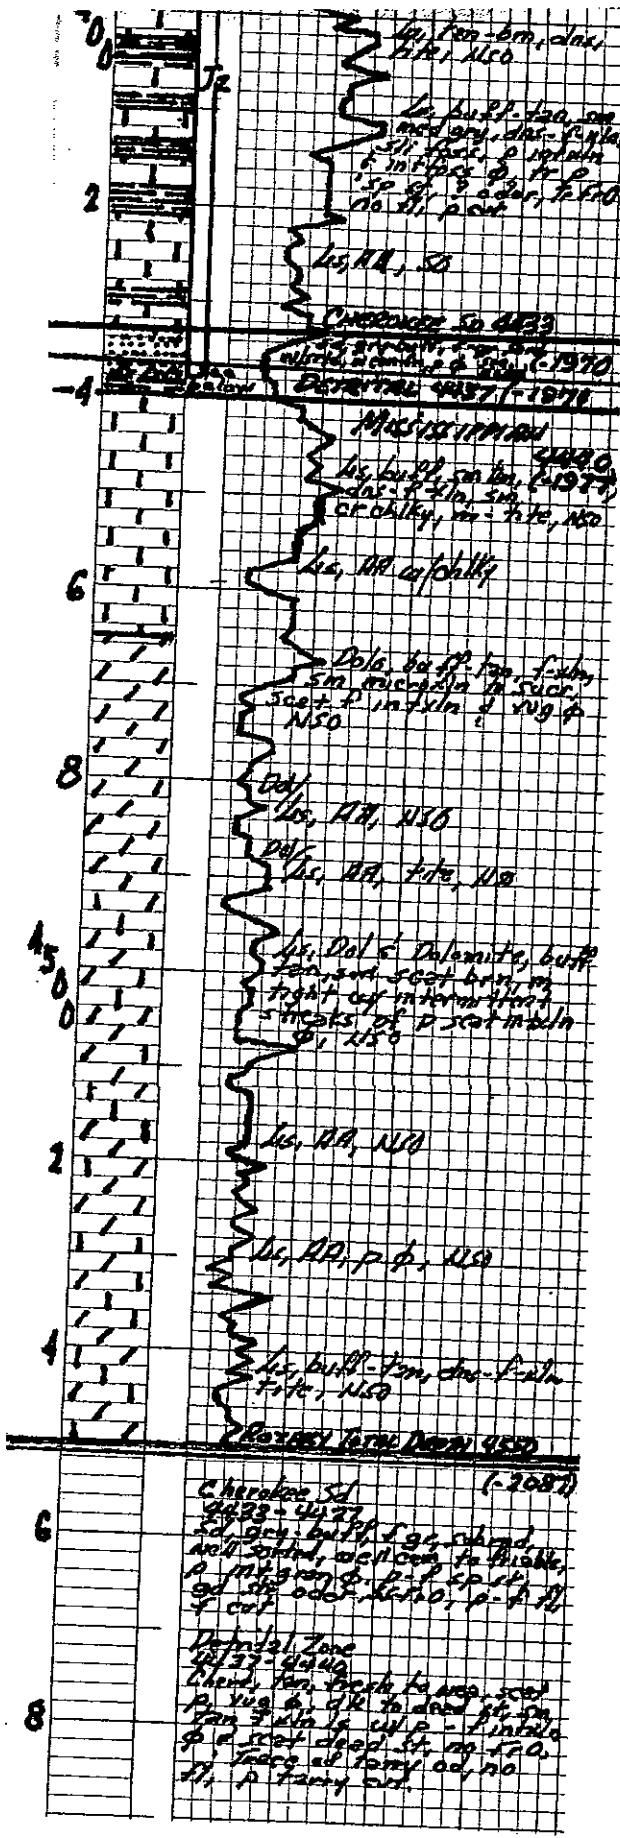 Ls, tan-brn, dns,
tite, NSO
J2
Ls, buff-tan, sm
med gry, dns-f xln,
sli foss, p intxln
& intfoss φ, tr p
sp st, ? odor, Tr FrO
no fl, p cut
2
Ls, AA, SO
CHEROKEE SD 4433
(-1970
see
below
DETRITAL 4437 (-1974
-4
MISSISSIPPIAN
4440
(-1977)
Ls, buff, sm tan,
dns-f xln, sm
cr chlky, m-tite, NSO
Ls, AA w/chlky
6
Dolo, buff-tan, f-xln,
sm microxln in sucr,
scat f intxln & vug φ
NSO
8
Dol/
Ls, AA, NSO
Dol/
Ls, AA, tite, NSO
4500
Ls, Dol & Dolomite, buff
tan, sm scat brn, m
tight w/ intermittent
streaks of p scat intxln
φ, NSO
2
Ls, AA, NSO
Ls, AA, p φ, NSO
4
Ls, buff-tan, dns-f-xln
tite, NSO
ROTARY TOTAL DEPTH 4550
(-2087)
Cherokee Sd
4433-4437
6
Sd, gry-buff, f gr, subrnd,
well sorted, well cem to friable,
p intgran φ, p-f sp st,
gd str odor, p-f fl,
f cut
Detrital Zone
4437-4440
Chert, tan, fresh to wea, scat
p vug φ, dk to dead st, sm
8
tan f xln ls w/ p-f intxln
φ & scat dead st, no FrO,
Trace of tarry od, no
fl, p tarry cut.